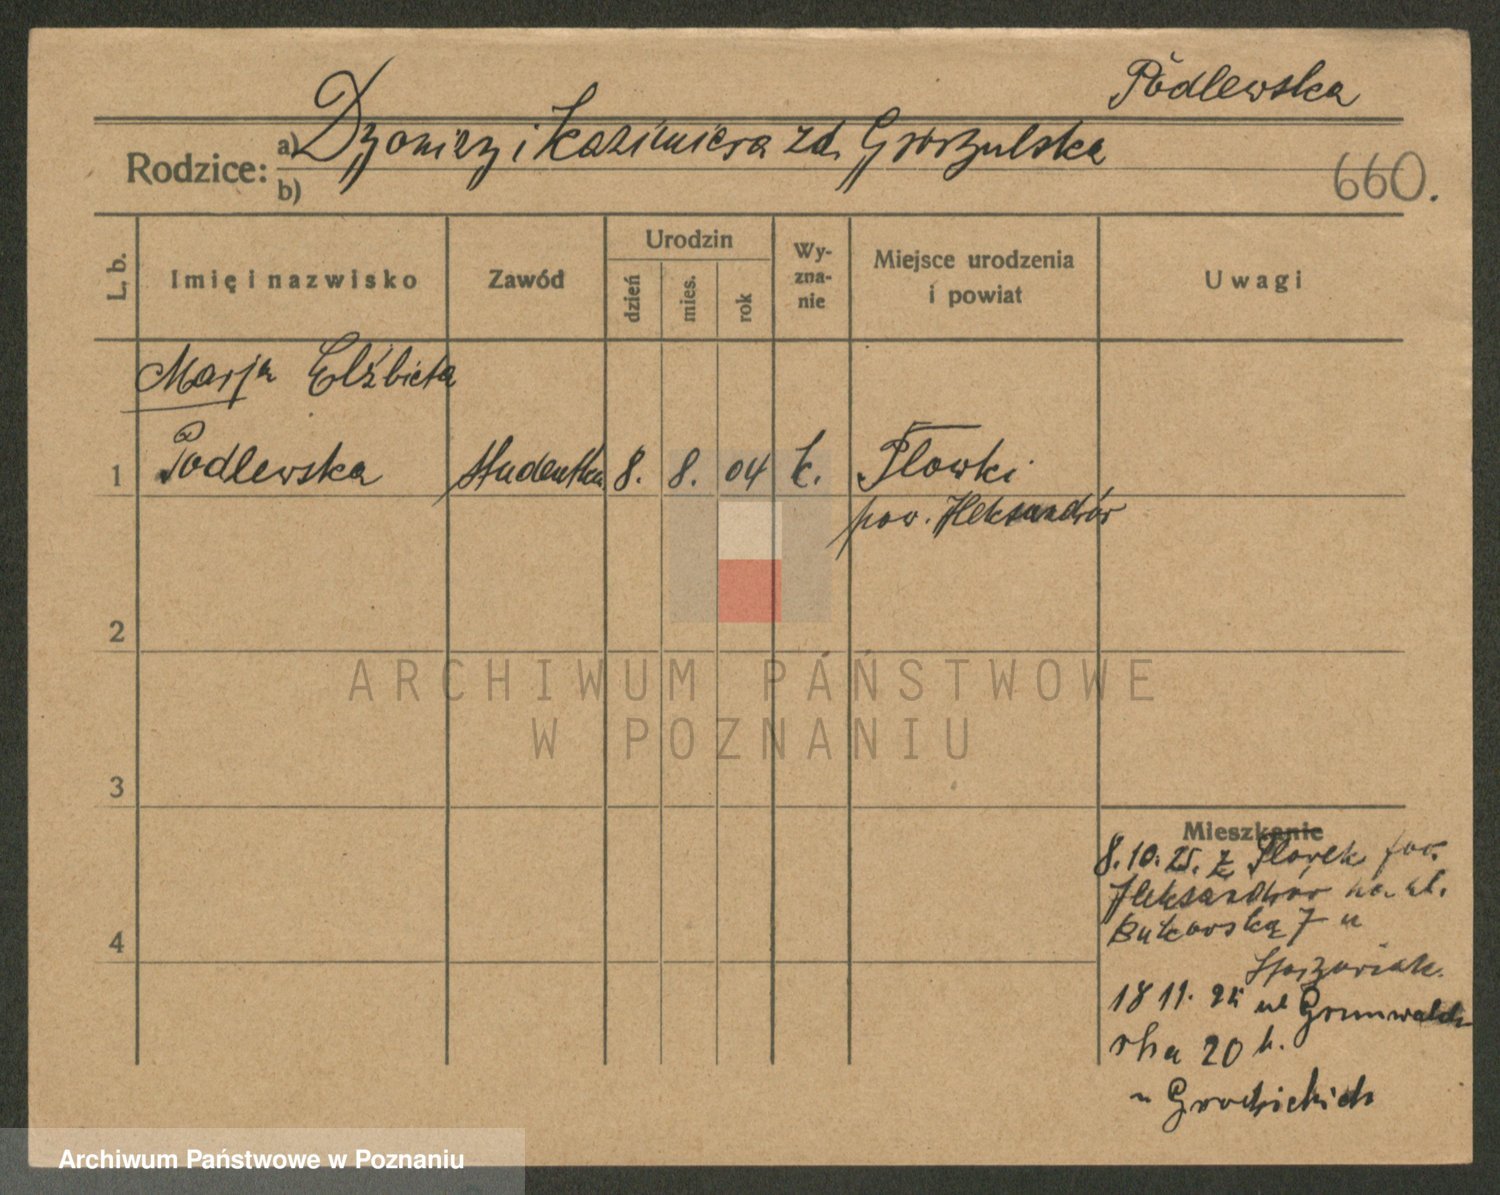 Podlewska
Rodzice: a) Dyonizy i Kazimiera zd. Gworzulska
b)
660.
L. b.
Imię i nazwisko
Zawód
Urodzin
dzień
mies.
rok
Wy-
zna-
nie
Miejsce urodzenia
i powiat
Uwagi
Marja Elżbieta
1 Podlewska studentka 8. 8. 04 k. Płowki
pow. Aleksandrów
2
3
4
Mieszkanie
8.10.25. z Płowek pow.
Aleksandrów na ul.
Bukowską 7 u
18 11. 25 ul Grunwaldz
ska 20 u Grodzickich
ARCHIWUM PAŃSTWOWE
W POZNANIU
Archiwum Państwowe w Poznaniu